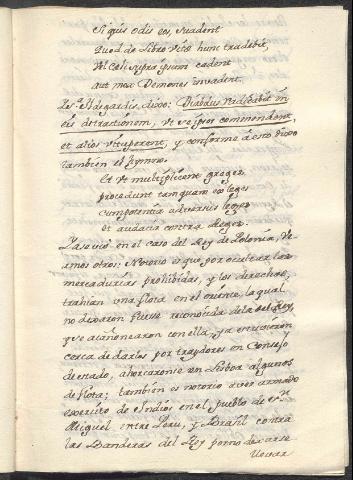 Si quis odis eos, suadent
Quod de Libro vitæ hunc tradebit,
Vel Celi supra ipsum cadent
aut mox Demones invadent.
Sta. Ildegardis, dixo: Diabolus radicabit in
eis detractionem, ut se ipsos commendent,
et alios vituperent, y conforme á esto dixo
tambien el Hymno.
Et ut multiplicent greges
procedunt tamquam ex leges
cum potentia adversus leges
et audacia contra Reges.
Ya se vió en el caso del Rey de Polonia, Ve-
amos otros: Notorio es que por ocultar las
mercadurias prohibidas, y los derechos,
trahian una flota en el oriente, la qual
no dexaron fuesse reconocida de la del Rey,
y se acañonearon con ella, y a estuvieron
cerca de darlos por traydores en Consejo
de estado, ahorcaronse en Lisboa algunos
de flota; tambien es notorio aver armado
exercito de Indios en el pueblo de Sn.
Miguel entre Peru, y Brasil contra
las Banderas del Rey por no dexarse